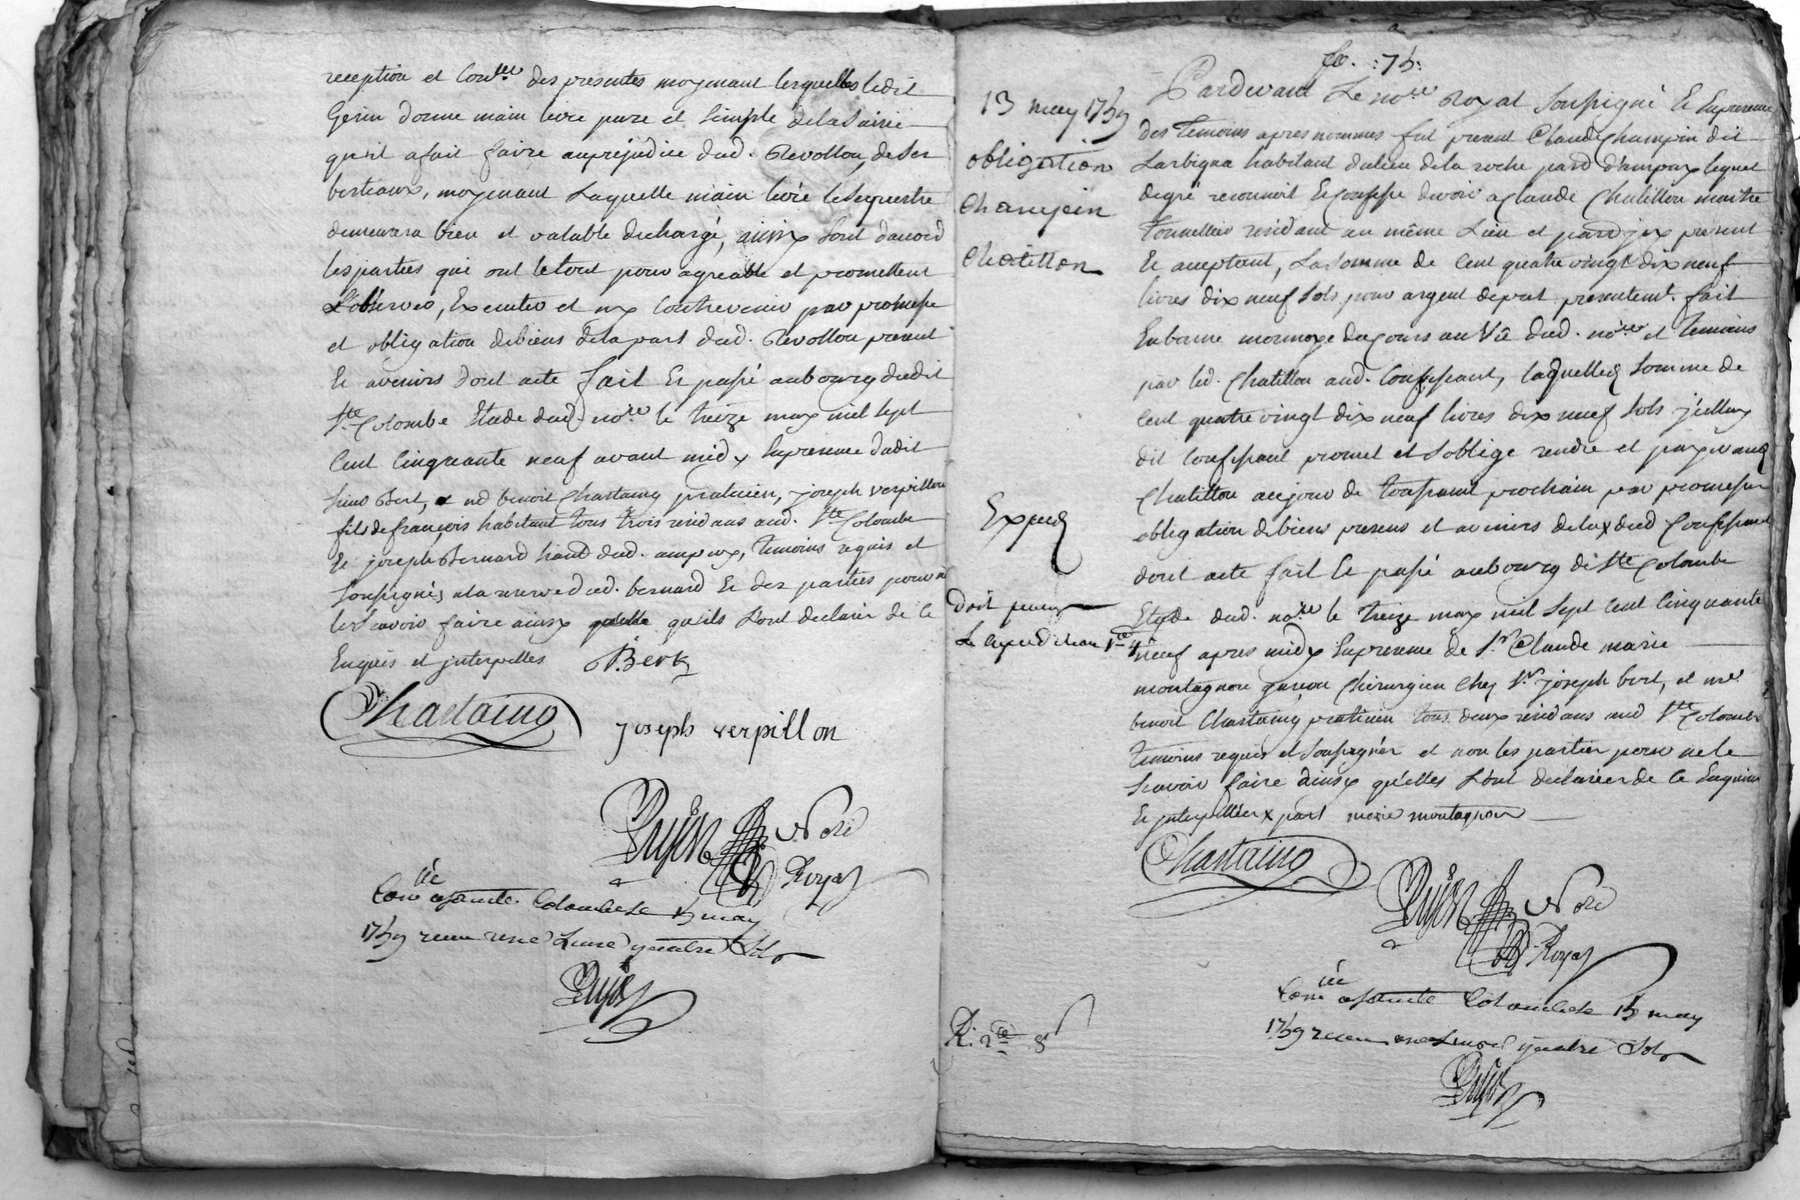 reception et Con.lle des presentes moyenant lesquelles ledit
Gerin donne main levée pure et simple de la saisie
qu'il a fait faire au préjudice dud. Revollon, de ses
bestiaux, moyenant laquelle main levée le sequestre
demeurera bien et valable dechargé, ainsy sont d'acord
les parties qui ont le tout pour agreable et promettent
L'observer, Executer et ny Contrevenir par promesse
et obligation de biens de la part dud. Revollon present
Et avenirs dont acte fait Et passé au bourg dudit
Ste Colombe Etude dud. no.re le treize may mil sept
Cent Cinquante neuf avant midy En presence dudit
sieur Bert, et me benoit Chastaing praticien, joseph verpillon
fils de françois habitant tous trois residans aud. Ste Colombe
Et joseph Bernard hant dud. ampuy, temoins requis et
soussignés a la reserve dud. bernard Et des parties pour ne
le sçavoir faire ainsy qu'ils L'ont declaré de Ce
Enquis et interpellés Bert
Chastaing
joseph verpillon
Nore
Royal
Con.lle a Sainte Colombe le 13 may
1759 receu une Livre quatre Sols
fo. 75.
13 may 1759
obligation
Champin
Chatillon
Exped
doit pour
L'expedition
Pardevant Le no.re Royal soussigné Et En presence
des temoins apres nommés fut present Claude Champin dit
Larbigna habitant du lieu de la roche par.d d'ampuy lequel
de gré reconnoit Et confesse devoir a Claude Chatillon maitre
Tonnellier residant au même Lieu et par.d icy present
Et acceptant, La somme de Cent quatre vingt dix neuf
livres dix neuf sols, pour argent de prest presentem.t fait
En bonne monnoye du Cours au Vû dud. no.re et temoins
par led. Chatillon aud. Confessant, laquelle somme de
Cent quatre vingt dix neuf livres dix neuf sols
dit Confessant promet et s'oblige rendre et payer aud
Chatillon au jour de toussaint prochain par promesse
obligation de biens presens et avenirs de la part dud Confessant
dont acte fait Et passé au bourg de Ste Colombe
Etude dud. no.re le treize may mil sept Cent Cinquante
neuf apres midy En presence de Sr Claude marie
montagnon garçon Chirurgien Chez Sr joseph bert, et me
benoit Chastaing praticien tous deux residans aud Ste Colombe
temoins requis et soussignés et non les parties pour ne le
sçavoir faire ainsy qu'elles L'ont declaré de Ce Enquises
Et interpellées part marie montagnon
Chastaing
Nore
Royal
Con.lle a Sainte Colombe le 13 may
1759 receu une Livre quatre Sols